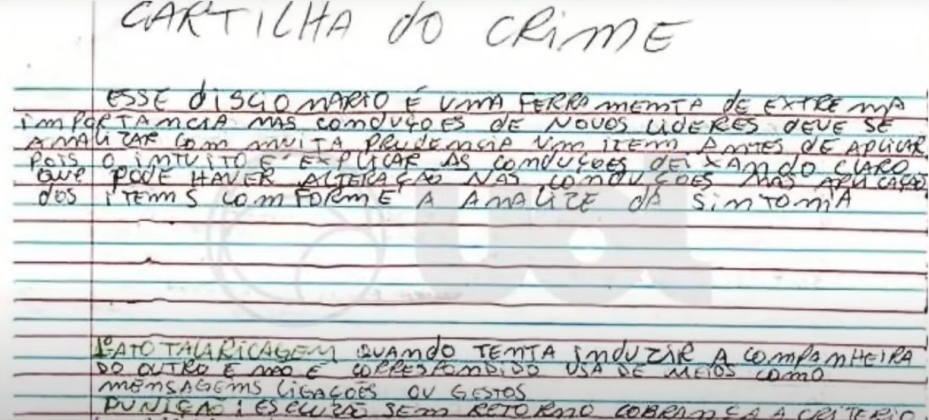 CARTILHA do CRIME
ESSE disciOMARIO É UMA FERRAMEMTA dE EXTREMA
IMPORTAMCIA MAS CONDUÇOES DE NOVOS LIDERES DEVE SE
AMALIZAR COM MUITA PRUDEMCIA UM ITEM AMTES DE APLICAR
POIS O IMTUITO É EXPLICAR AS CONDUÇOES DEIXAMDO CLARO
QUE PODE HAVER ALTERAÇÃO NAS CONDUÇOES MAS APLICAÇÃO
dOS ITEMS COMFORME A AMALIZE dA SIMTOMIA
1º ATO TALARICAGEM QUAMDO TEMTA iMdUZIR A COMPAMHEIRA
DO OUTRO E MÃO É CORRESPOMDIDO USA DE MEIOS COMO
MEMSAGEMS LIGAÇÕES OU GESTOS
PUNIÇÃO: ESCLUZÃO SEM RETORNO COBRAMÇA A CRITERIO